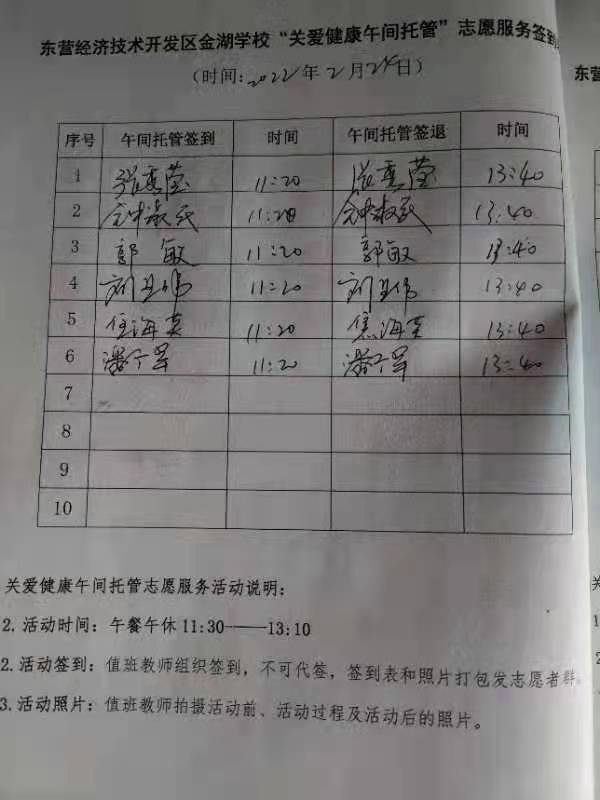 东营经济技术开发区金湖学校“关爱健康午间托管”志愿服务签到
（时间：2022年2月24日）
东营
序号 午间托管签到 时间 午间托管签退 时间
1 11:20 13:40
2 11:20 13:40
3 郭敏 11:20 郭敏 13:40
4 11:20 13:40
5 11:20 焦海 13:40
6 潘 11:20 潘 13:40
7
8
9
10
关爱健康午间托管志愿服务活动说明：
2.活动时间：午餐午休11:30——13:10
2.活动签到：值班教师组织签到，不可代签，签到表和照片打包发志愿者群。
3.活动照片：值班教师拍摄活动前、活动过程及活动后的照片。